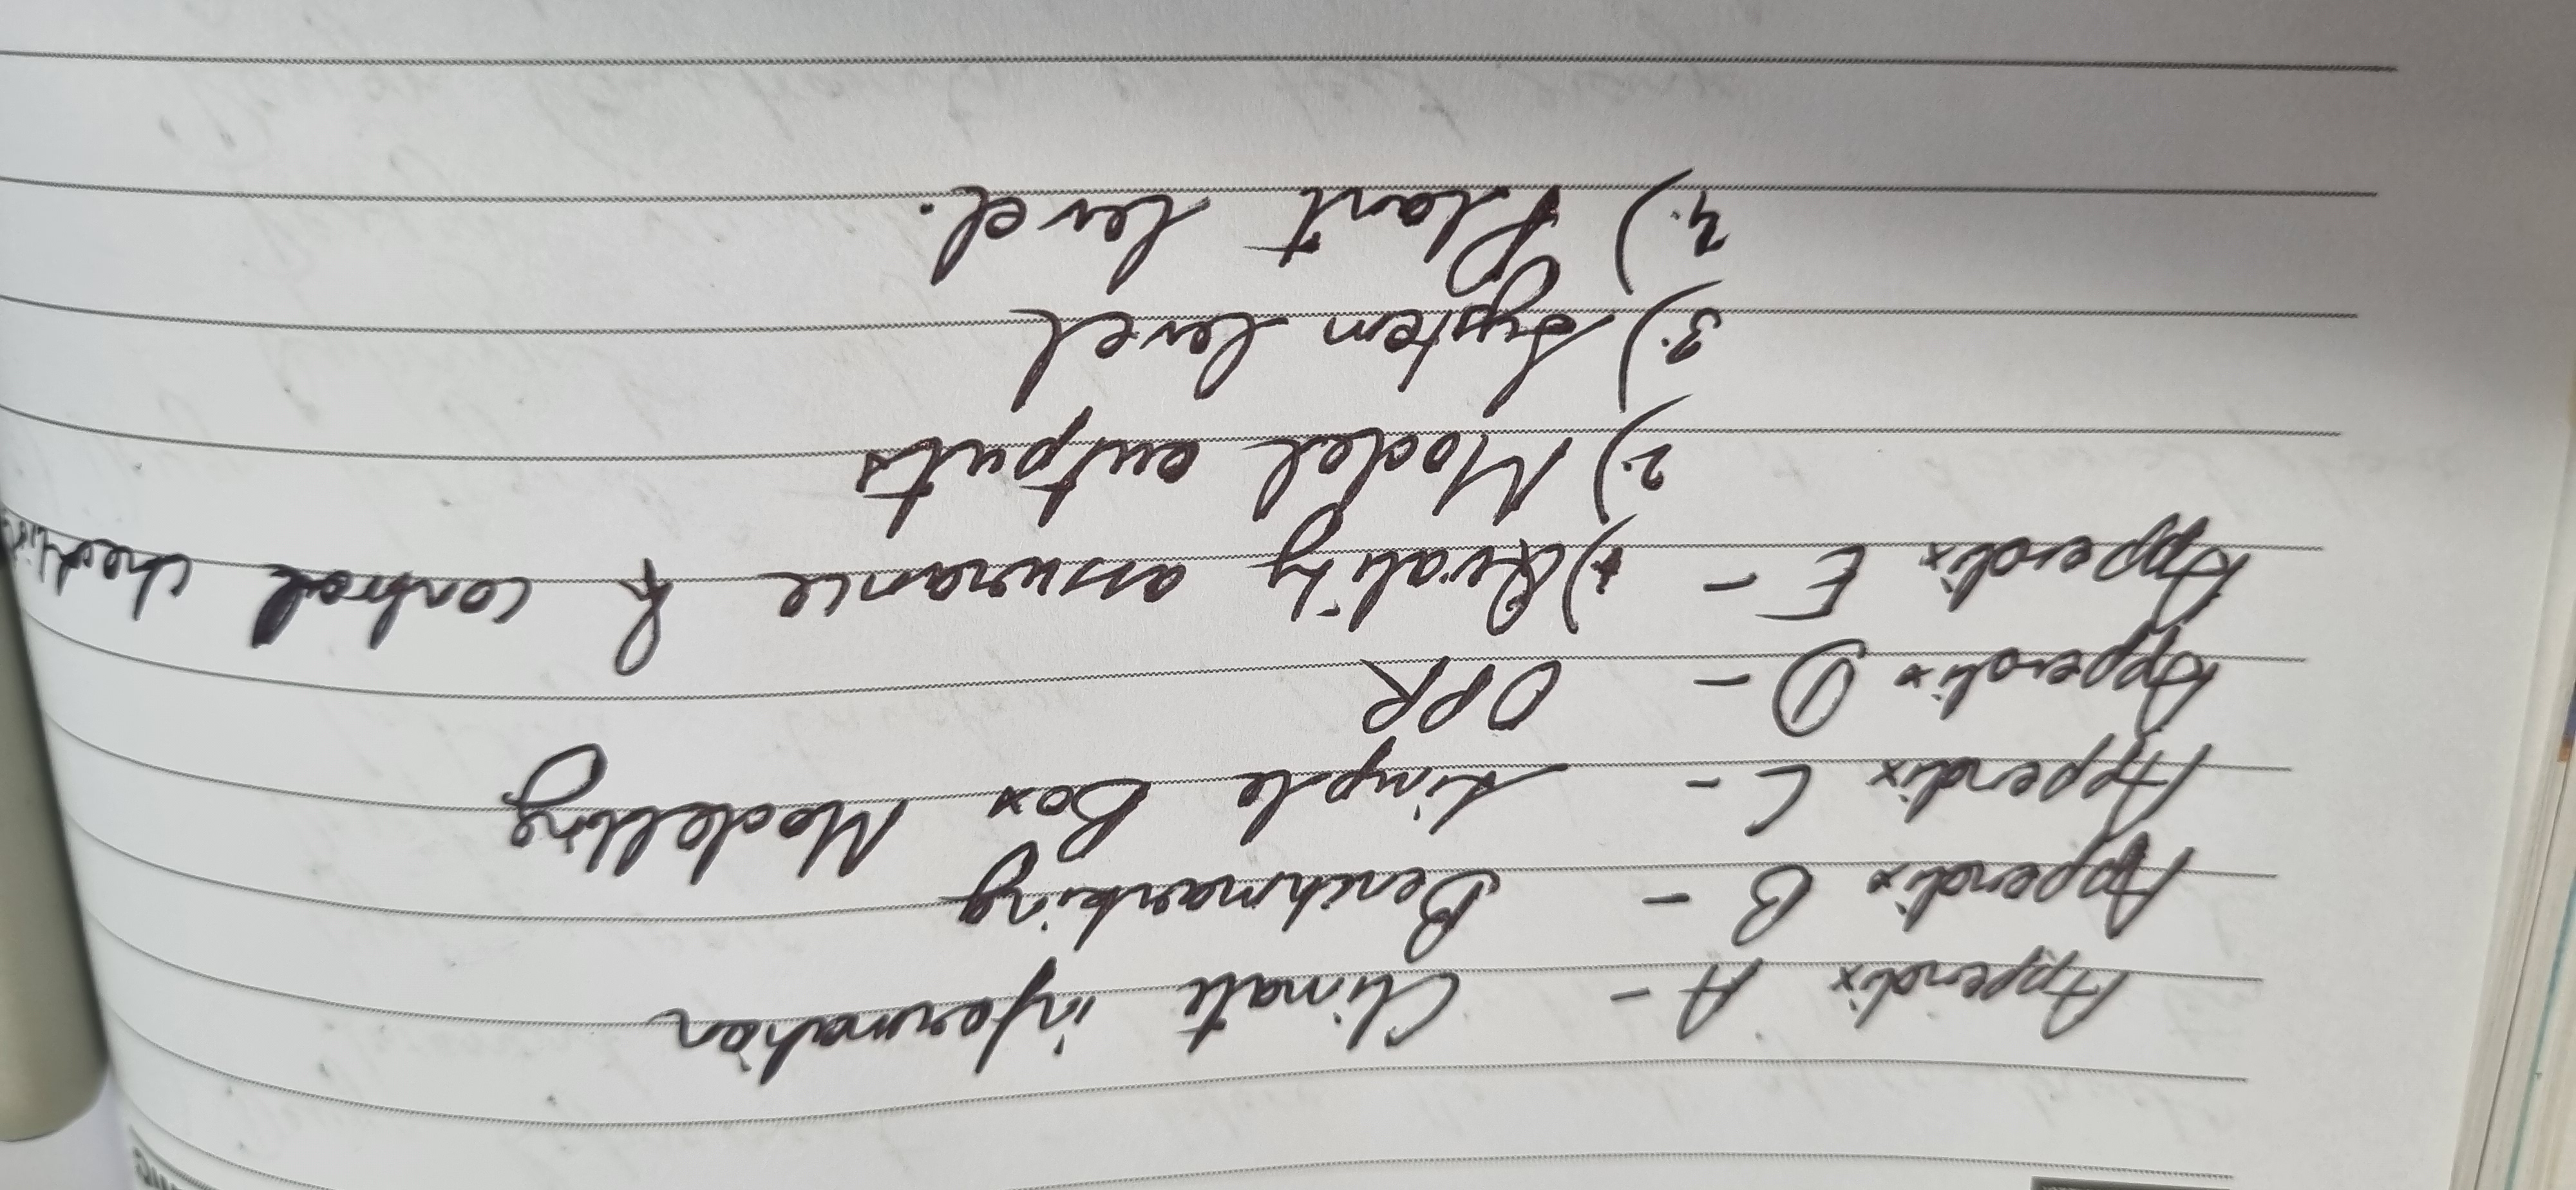 Appendix A - Climate information
Appendix B - Benchmarking
Appendix C - Simple Box Modelling
Appendix D - OPR
Appendix E - 1) Quality assurance & control checklist
2.) Model outputs
3.) System level
4.) Plant level.